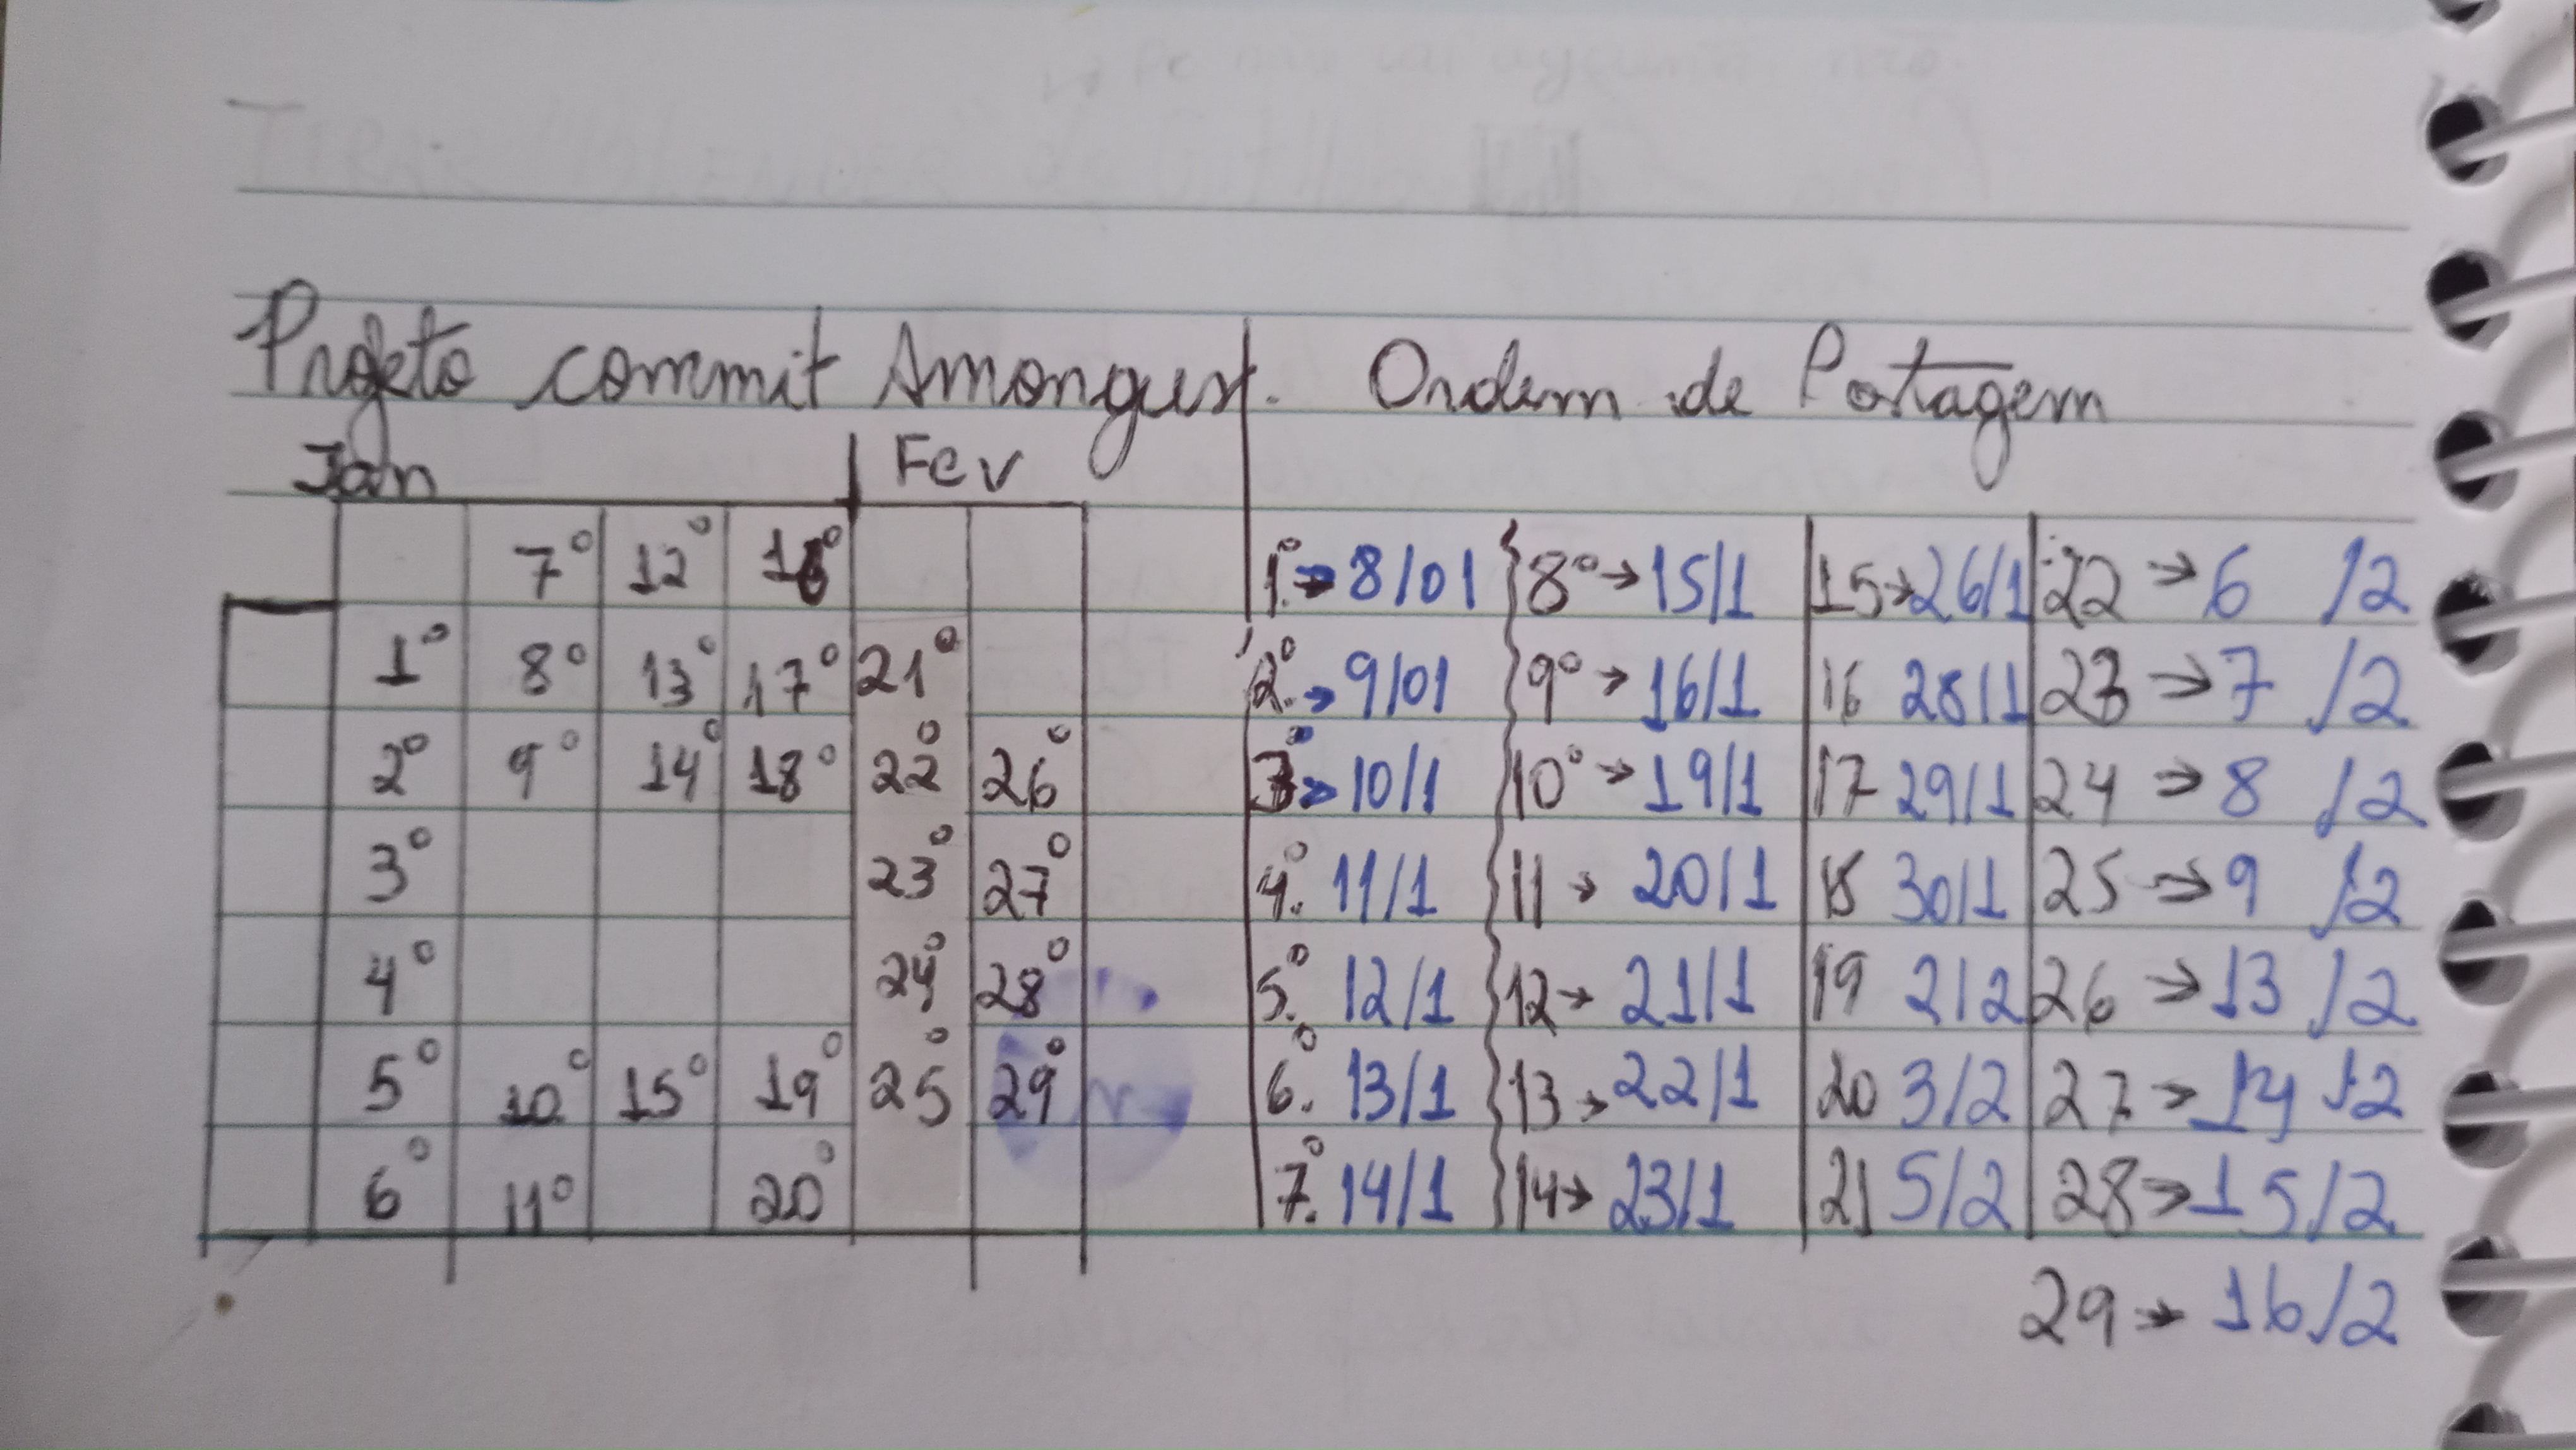 Projeto commit Amongust. Ordem de Postagem
Jan Fev
7° 12° 16°
1° 8° 13° 17° 21°
2° 9° 14° 18° 22° 26°
3° 23° 27°
4° 24° 28°
5° 10° 15° 19° 25° 29°
6° 11° 20°
1.° → 8/01 8° → 15/1 15 → 26/1 22 → 6 /2
2.° → 9/01 9° → 16/1 16 28/1 23 → 7 /2
3° → 10/1 10° → 19/1 17 29/1 24 → 8 /2
4.° 11/1 11 → 20/1 18 30/1 25 → 9 /2
5.° 12/1 12 → 21/1 19 2/2 26 → 13 /2
6.° 13/1 13 → 22/1 20 3/2 27 → 14 /2
7.° 14/1 14 → 23/1 21 5/2 28 → 15/2
29 → 16/2